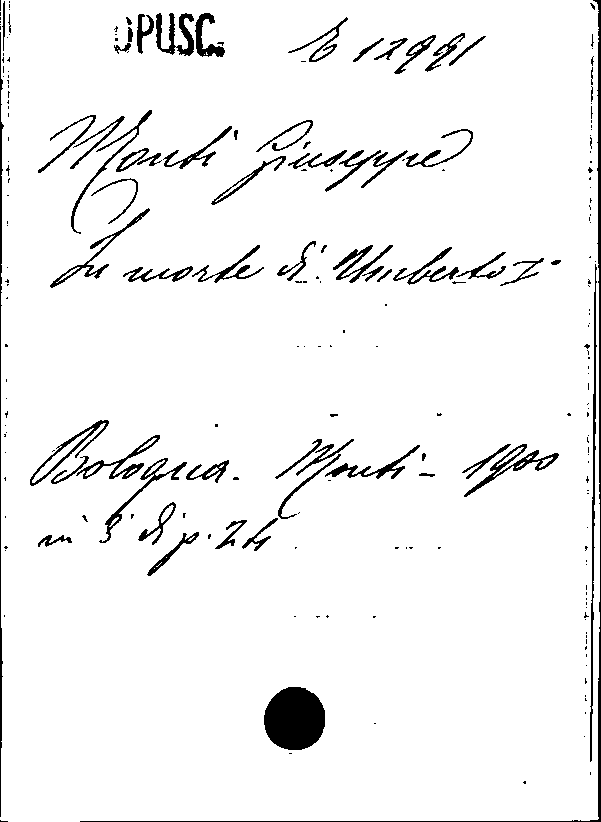 OPUSC. E 12991
Monti Giuseppe
In morte di Umberto I°
Bologna. Monti - 1900
in 8° di p. 24